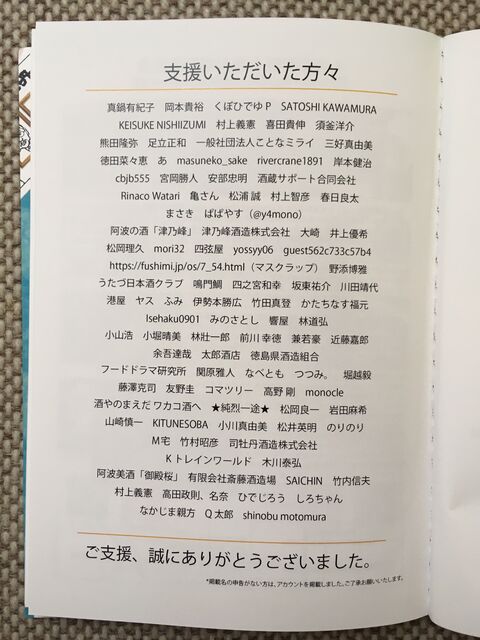 支援いただいた方々
真鍋有紀子　岡本貴裕　くぼひでゆＰ　SATOSHI KAWAMURA
KEISUKE NISHIIZUMI　村上義憲　喜田貴伸　須釜洋介
熊田隆弥　足立正和　一般社団法人ことなミライ　三好真由美
徳田菜々恵　あ　masuneko_sake　rivercrane1891　岸本健治
cbjb555　宮岡勝人　安部忠明　酒蔵サポート合同会社
Rinaco Watari　亀さん　松浦 誠　村上智彦　春日良太
まさき　ぱぱやす（@y4mono）
阿波の酒「津乃峰」 津乃峰酒造株式会社　大崎　井上優希
松岡理久　mori32　四弦屋　yossyy06　guest562c733c57b4
https://fushimi.jp/os/7_54.html（マスクラップ）　野添博雅
うたづ日本酒クラブ　鳴門鯛　四之宮和幸　坂東祐介　川田靖代
港屋　ヤス　ふみ　伊勢本勝広　竹田真登　かたちなす福元
Isehaku0901　みのさとし　響屋　林道弘
小山浩　小堀晴美　林壯一郎　前川 幸徳　兼若豪　近藤嘉郎
余吾達哉　太郎酒店　徳島県酒造組合
フードドラマ研究所　関原雅人　なべとも　つつみ。　堀越毅
藤澤克司　友野圭　コマツリー　高野 剛　monocle
酒やのまえだ ワカコ酒へ　★純烈一途★　松岡良一　岩田麻希
山崎慎一　KITUNESOBA　小川真由美　松井英明　のりのり
Ｍ宅　竹村昭彦　司牡丹酒造株式会社
Ｋトレインワールド　木川泰弘
阿波美酒「御殿桜」 有限会社斎藤酒造場　SAICHIN　竹内信夫
村上義憲　高田政則、名奈　ひでじろう　しろちゃん
なかじま親方　Ｑ太郎　shinobu motomura
ご支援、誠にありがとうございました。
*掲載名の申告がない方は、アカウントを掲載しました。ご了承お願いいたします。